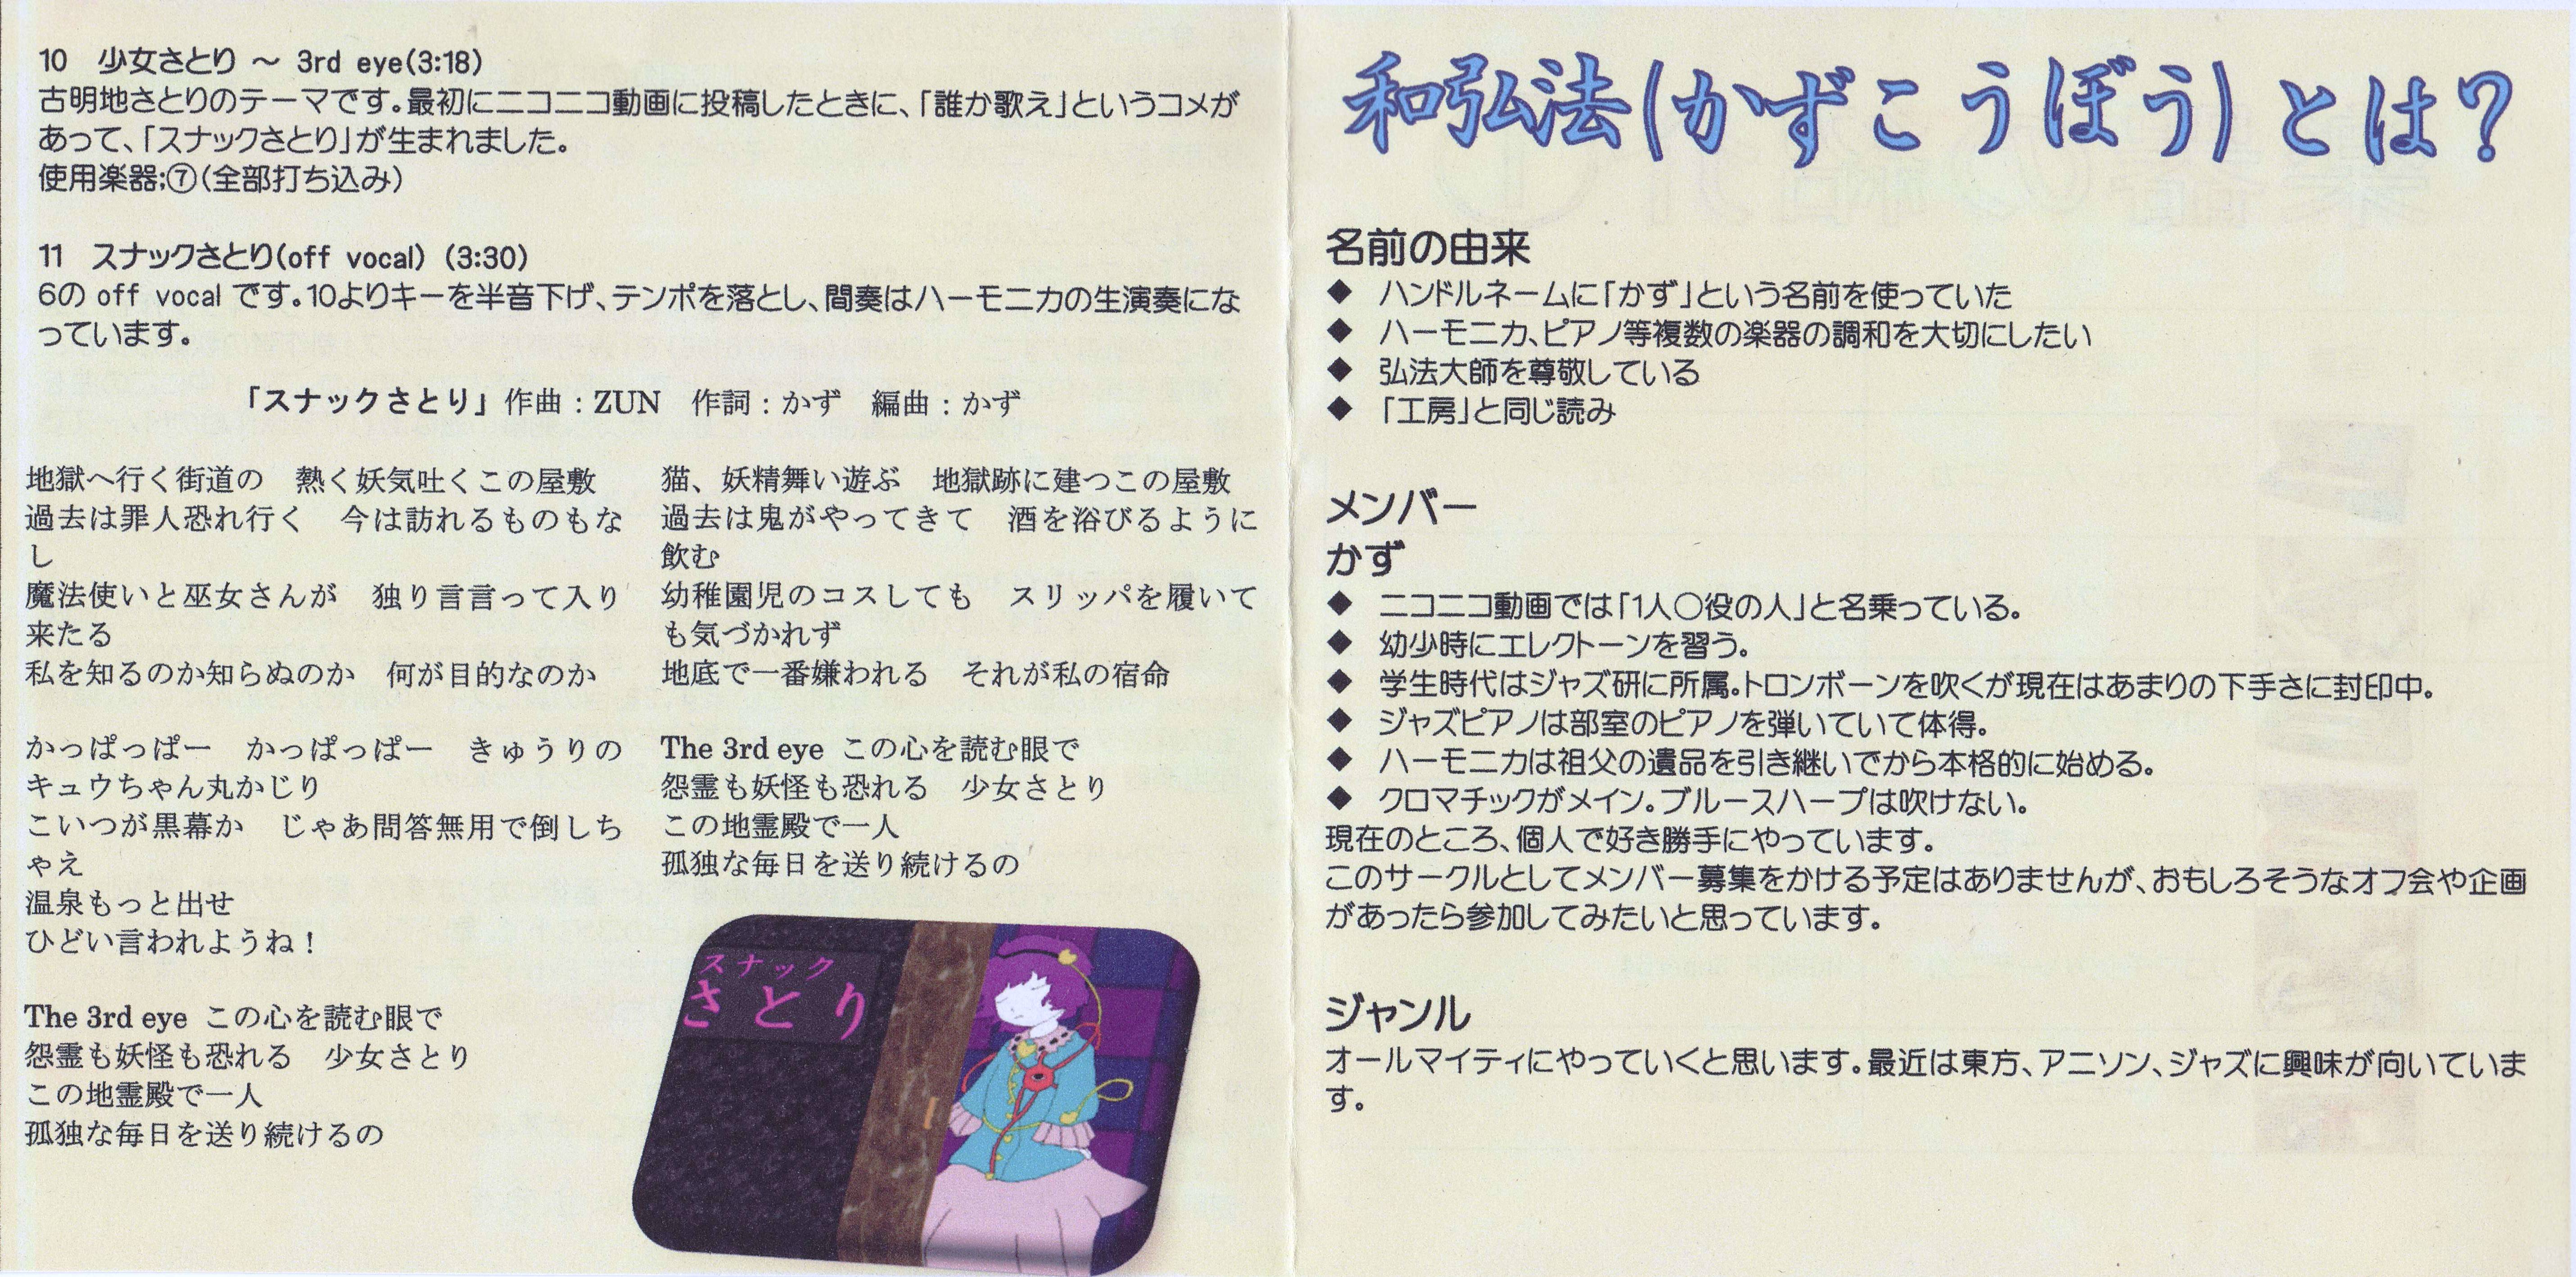 10　少女さとり ～ 3rd eye(3:18)
古明地さとりのテーマです。最初にニコニコ動画に投稿したときに、「誰か歌え」というコメが
あって、「スナックさとり」が生まれました。
使用楽器;⑦(全部打ち込み)
11　スナックさとり(off vocal) (3:30)
6の off vocal です。10よりキーを半音下げ、テンポを落とし、間奏はハーモニカの生演奏にな
っています。
「スナックさとり」作曲：ZUN　作詞：かず　編曲：かず
地獄へ行く街道の　熱く妖気吐くこの屋敷
過去は罪人恐れ行く　今は訪れるものもな
し
魔法使いと巫女さんが　独り言言って入り
来たる
私を知るのか知らぬのか　何が目的なのか
かっぱっぱー　かっぱっぱー　きゅうりの
キュウちゃん丸かじり
こいつが黒幕か　じゃあ問答無用で倒しち
ゃえ
温泉もっと出せ
ひどい言われようね！
The 3rd eye この心を読む眼で
怨霊も妖怪も恐れる　少女さとり
この地霊殿で一人
孤独な毎日を送り続けるの
猫、妖精舞い遊ぶ　地獄跡に建つこの屋敷
過去は鬼がやってきて　酒を浴びるように
飲む
幼稚園児のコスしても　スリッパを履いて
も気づかれず
地底で一番嫌われる　それが私の宿命
The 3rd eye この心を読む眼で
怨霊も妖怪も恐れる　少女さとり
この地霊殿で一人
孤独な毎日を送り続けるの
スナック
さとり
和弘法(かずこうぼう)とは?
名前の由来
◆ ハンドルネームに「かず」という名前を使っていた
◆ ハーモニカ、ピアノ等複数の楽器の調和を大切にしたい
◆ 弘法大師を尊敬している
◆ 「工房」と同じ読み
メンバー
かず
◆ ニコニコ動画では「1人〇役の人」と名乗っている。
◆ 幼少時にエレクトーンを習う。
◆ 学生時代はジャズ研に所属。トロンボーンを吹くが現在はあまりの下手さに封印中。
◆ ジャズピアノは部室のピアノを弾いていて体得。
◆ ハーモニカは祖父の遺品を引き継いでから本格的に始める。
◆ クロマチックがメイン。ブルースハープは吹けない。
現在のところ、個人で好き勝手にやっています。
このサークルとしてメンバー募集をかける予定はありませんが、おもしろそうなオフ会や企画
があったら参加してみたいと思っています。
ジャンル
オールマイティにやっていくと思います。最近は東方、アニソン、ジャズに興味が向いていま
す。